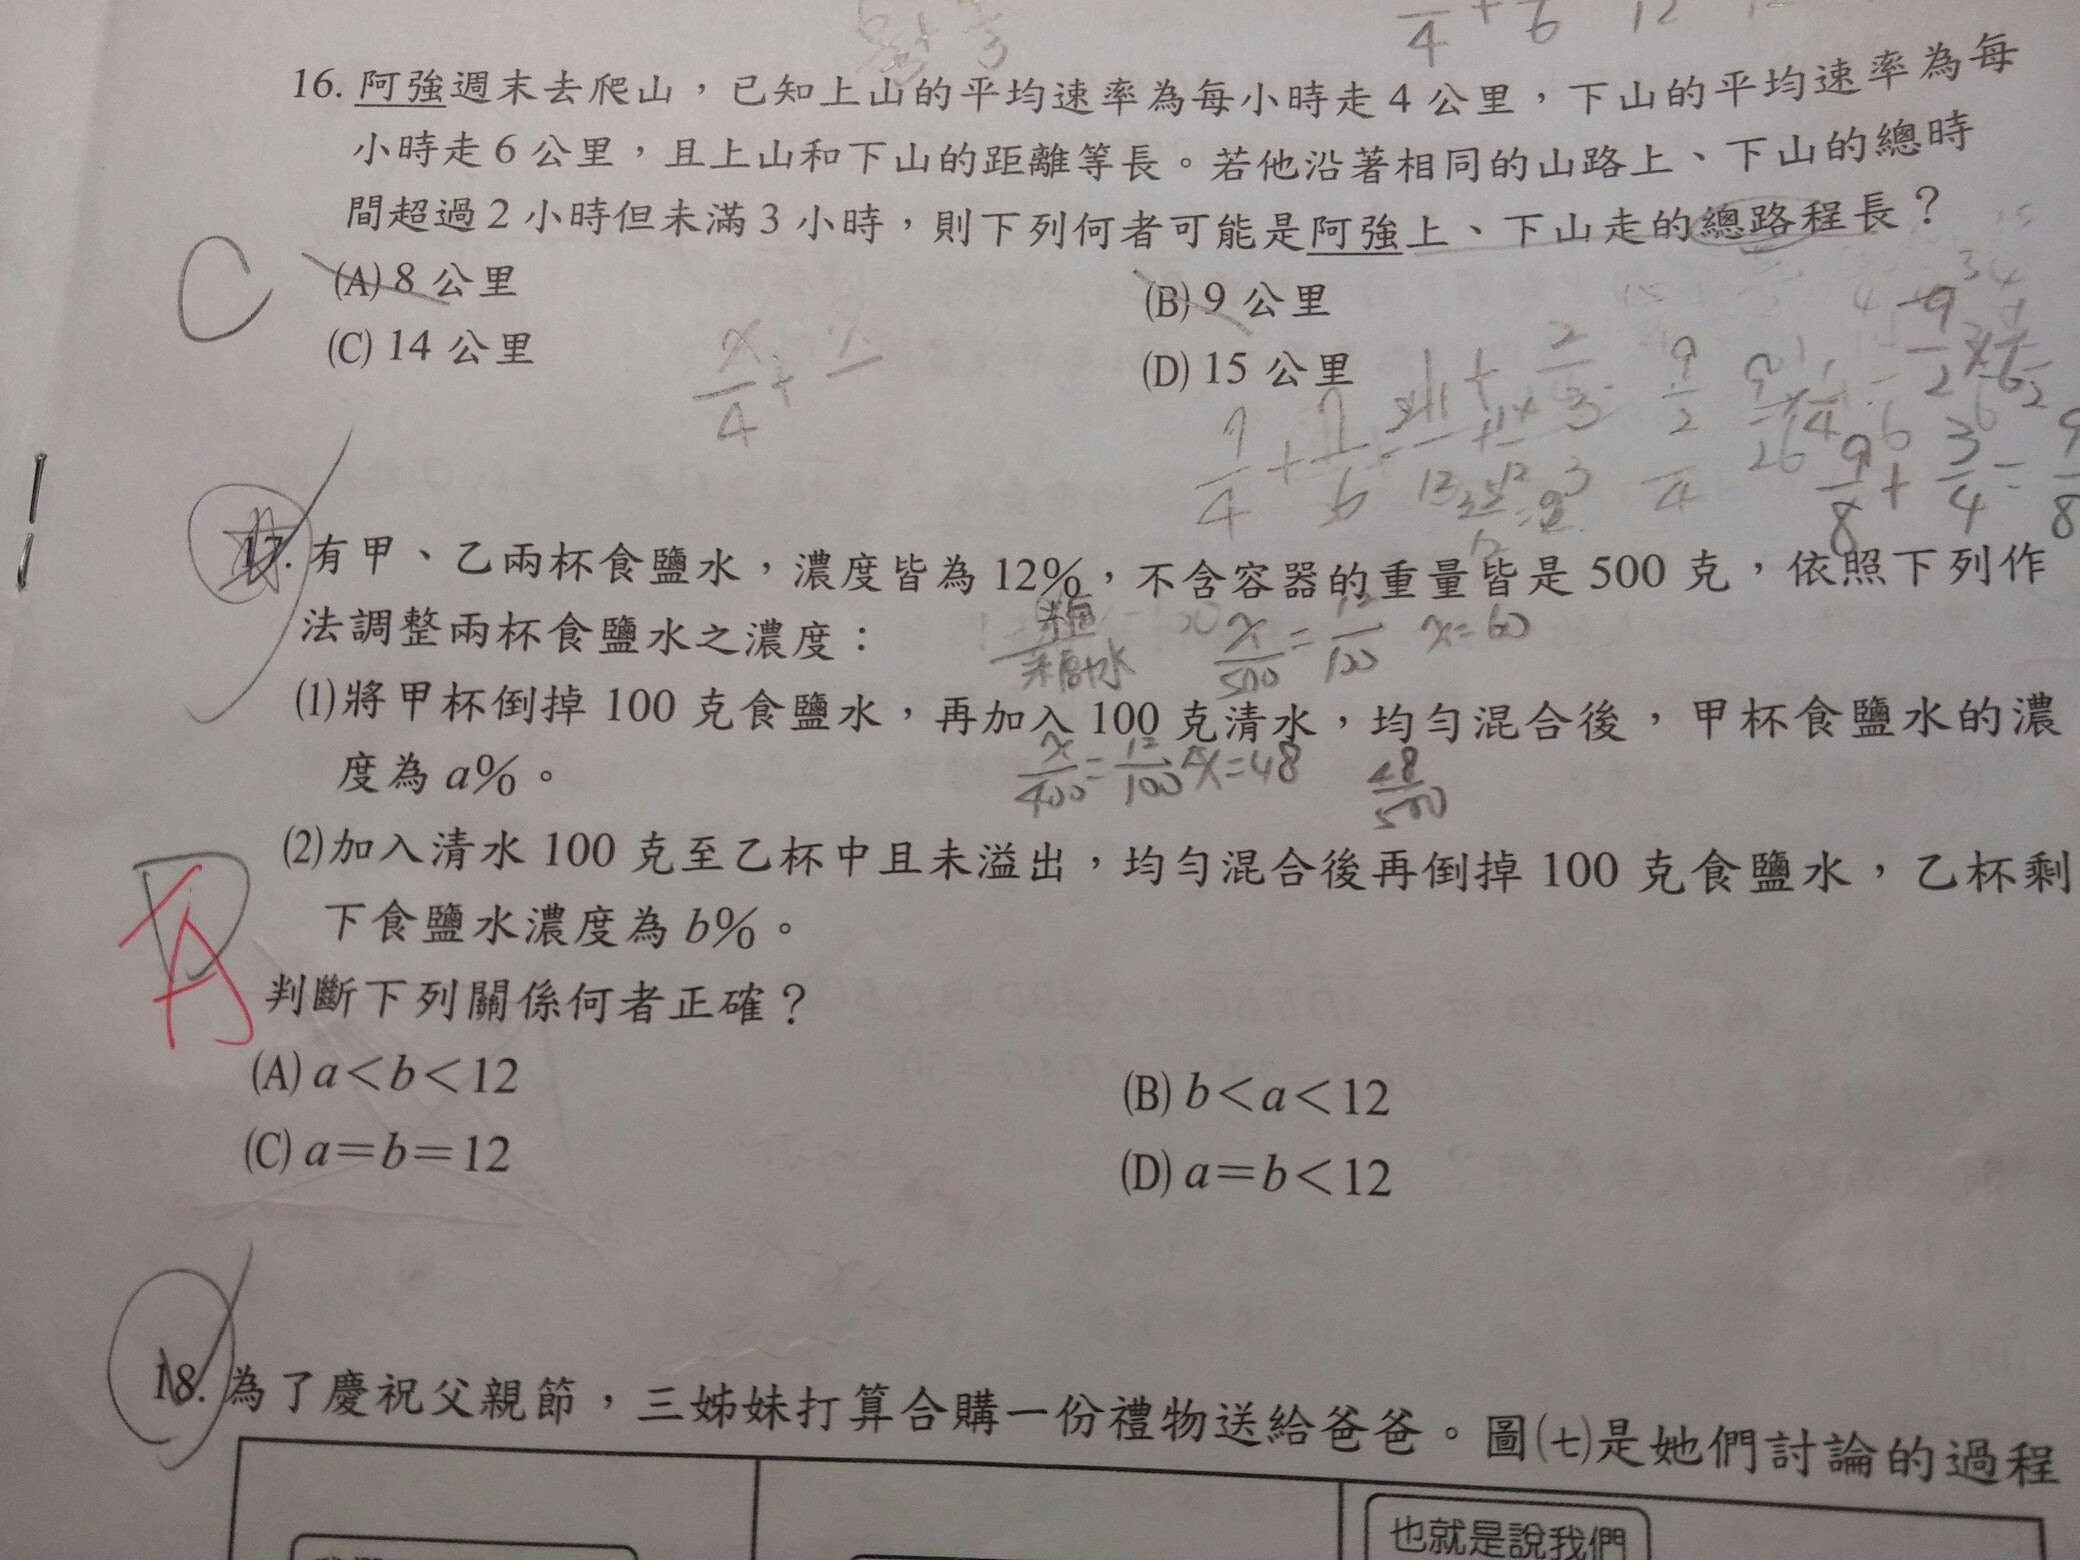 16. 阿強週末去爬山，已知上山的平均速率為每小時走4公里，下山的平均速率為每
小時走6公里，且上山和下山的距離等長。若他沿著相同的山路上、下山的總時
間超過2小時但未滿3小時，則下列何者可能是阿強上、下山走的總路程長？
C
(A) 8 公里
(B) 9 公里
(C) 14 公里
(D) 15 公里
17. 有甲、乙兩杯食鹽水，濃度皆為12%，不含容器的重量皆是500克，依照下列作
法調整兩杯食鹽水之濃度：
x/500 = 12/100 x=60
(1)將甲杯倒掉100克食鹽水，再加入100克清水，均勻混合後，甲杯食鹽水的濃
度為a%。
x/400 = 12/100 x=48 48/500
(2)加入清水100克至乙杯中且未溢出，均勻混合後再倒掉100克食鹽水，乙杯剩
下食鹽水濃度為b%。
D
A
判斷下列關係何者正確？
(A) a<b<12
(B) b<a<12
(C) a=b=12
(D) a=b<12
18. 為了慶祝父親節，三姊妹打算合購一份禮物送給爸爸。圖(七)是她們討論的過程
也就是說我們